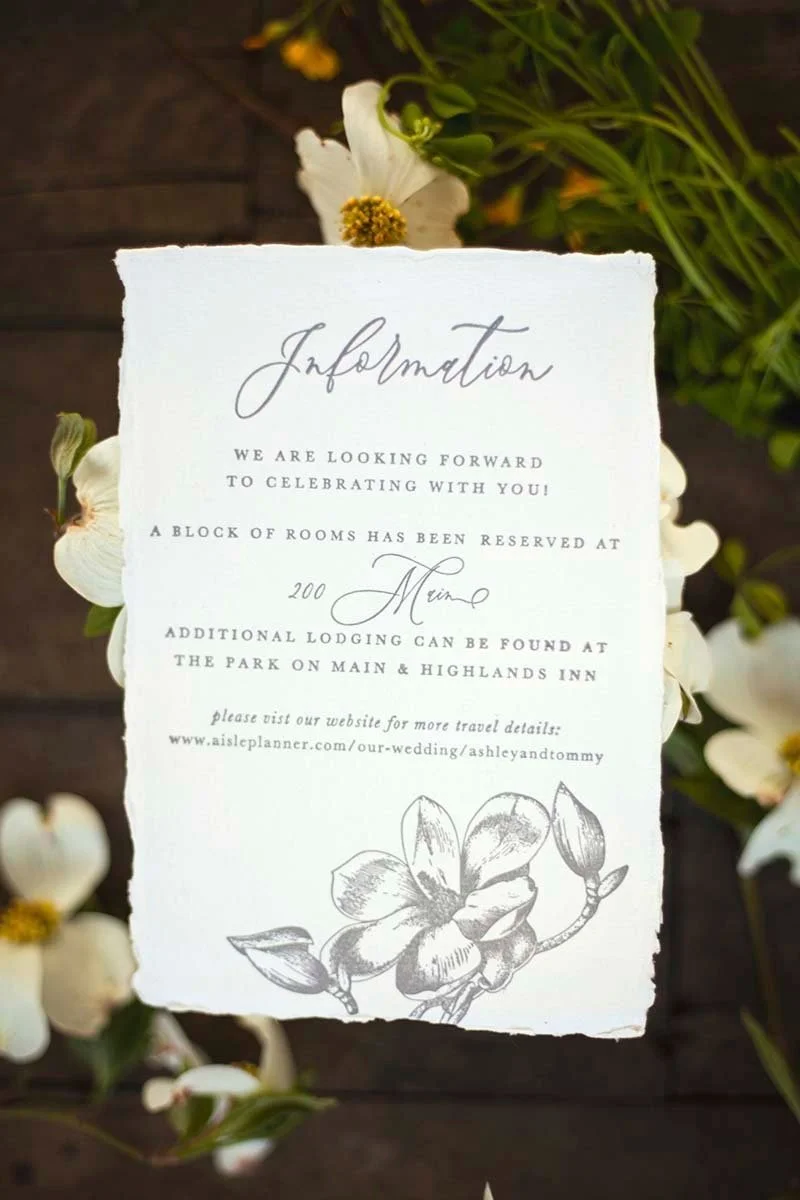 Information
WE ARE LOOKING FORWARD
TO CELEBRATING WITH YOU!
A BLOCK OF ROOMS HAS BEEN RESERVED AT
200 Main
ADDITIONAL LODGING CAN BE FOUND AT
THE PARK ON MAIN & HIGHLANDS INN
please vist our website for more travel details:
www.aisleplanner.com/our-wedding/ashleyandtommy